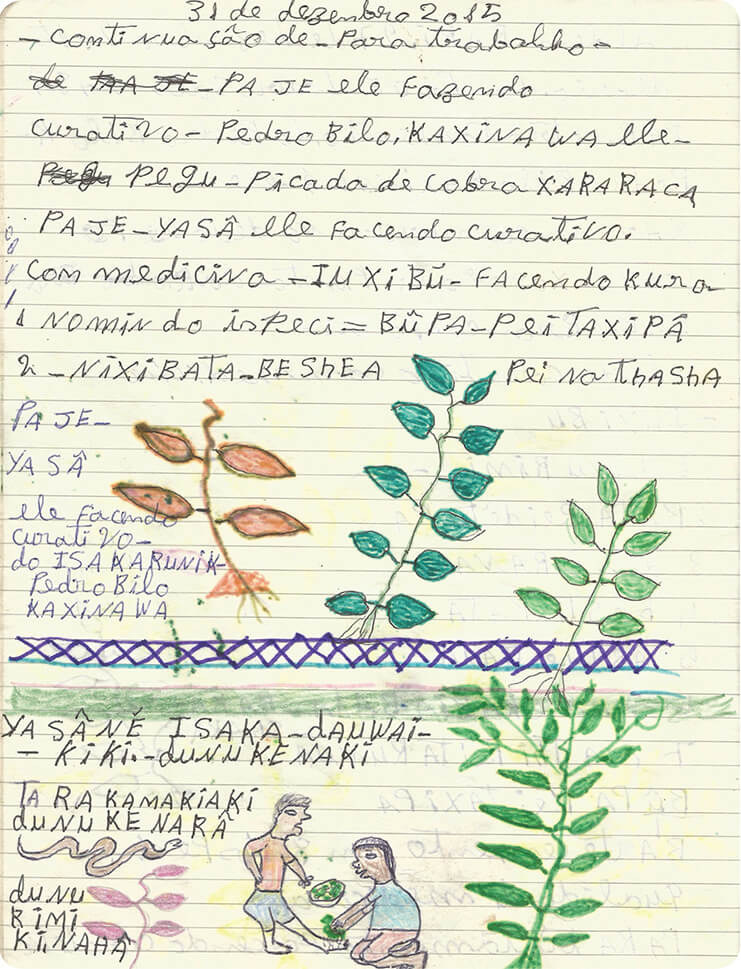 31 de dezembro 2015
- Continuasão de - Para trabalho -
de PAJE - PAJE ele Fazendo
curativo - Pedro Bilo, KAXINAWA ele -
Pegu Pegu - Picada de cobra XARARACA
PAJE - YASÂ ele facendo curativo.
Com medicina - IUXIBŨ - Facendo Kura
1 nomin do ispeci = BŨPA - PEI TAXIPÂ
2 - NIXIBATA - BESHEA Pei NAThASHA
PAJE -
YASÂ
ele facendo
curativo -
do ISAKARUNIK -
Pedro Bilo
KAXINAWA
YASÂNẼ ISAKA - dAUWAI -
- KiKi. - dUNUKENAKI
TARAKAMAKIAKI
dUNUKENARÂ
dUNU
RIMI
KI, NAHÂ